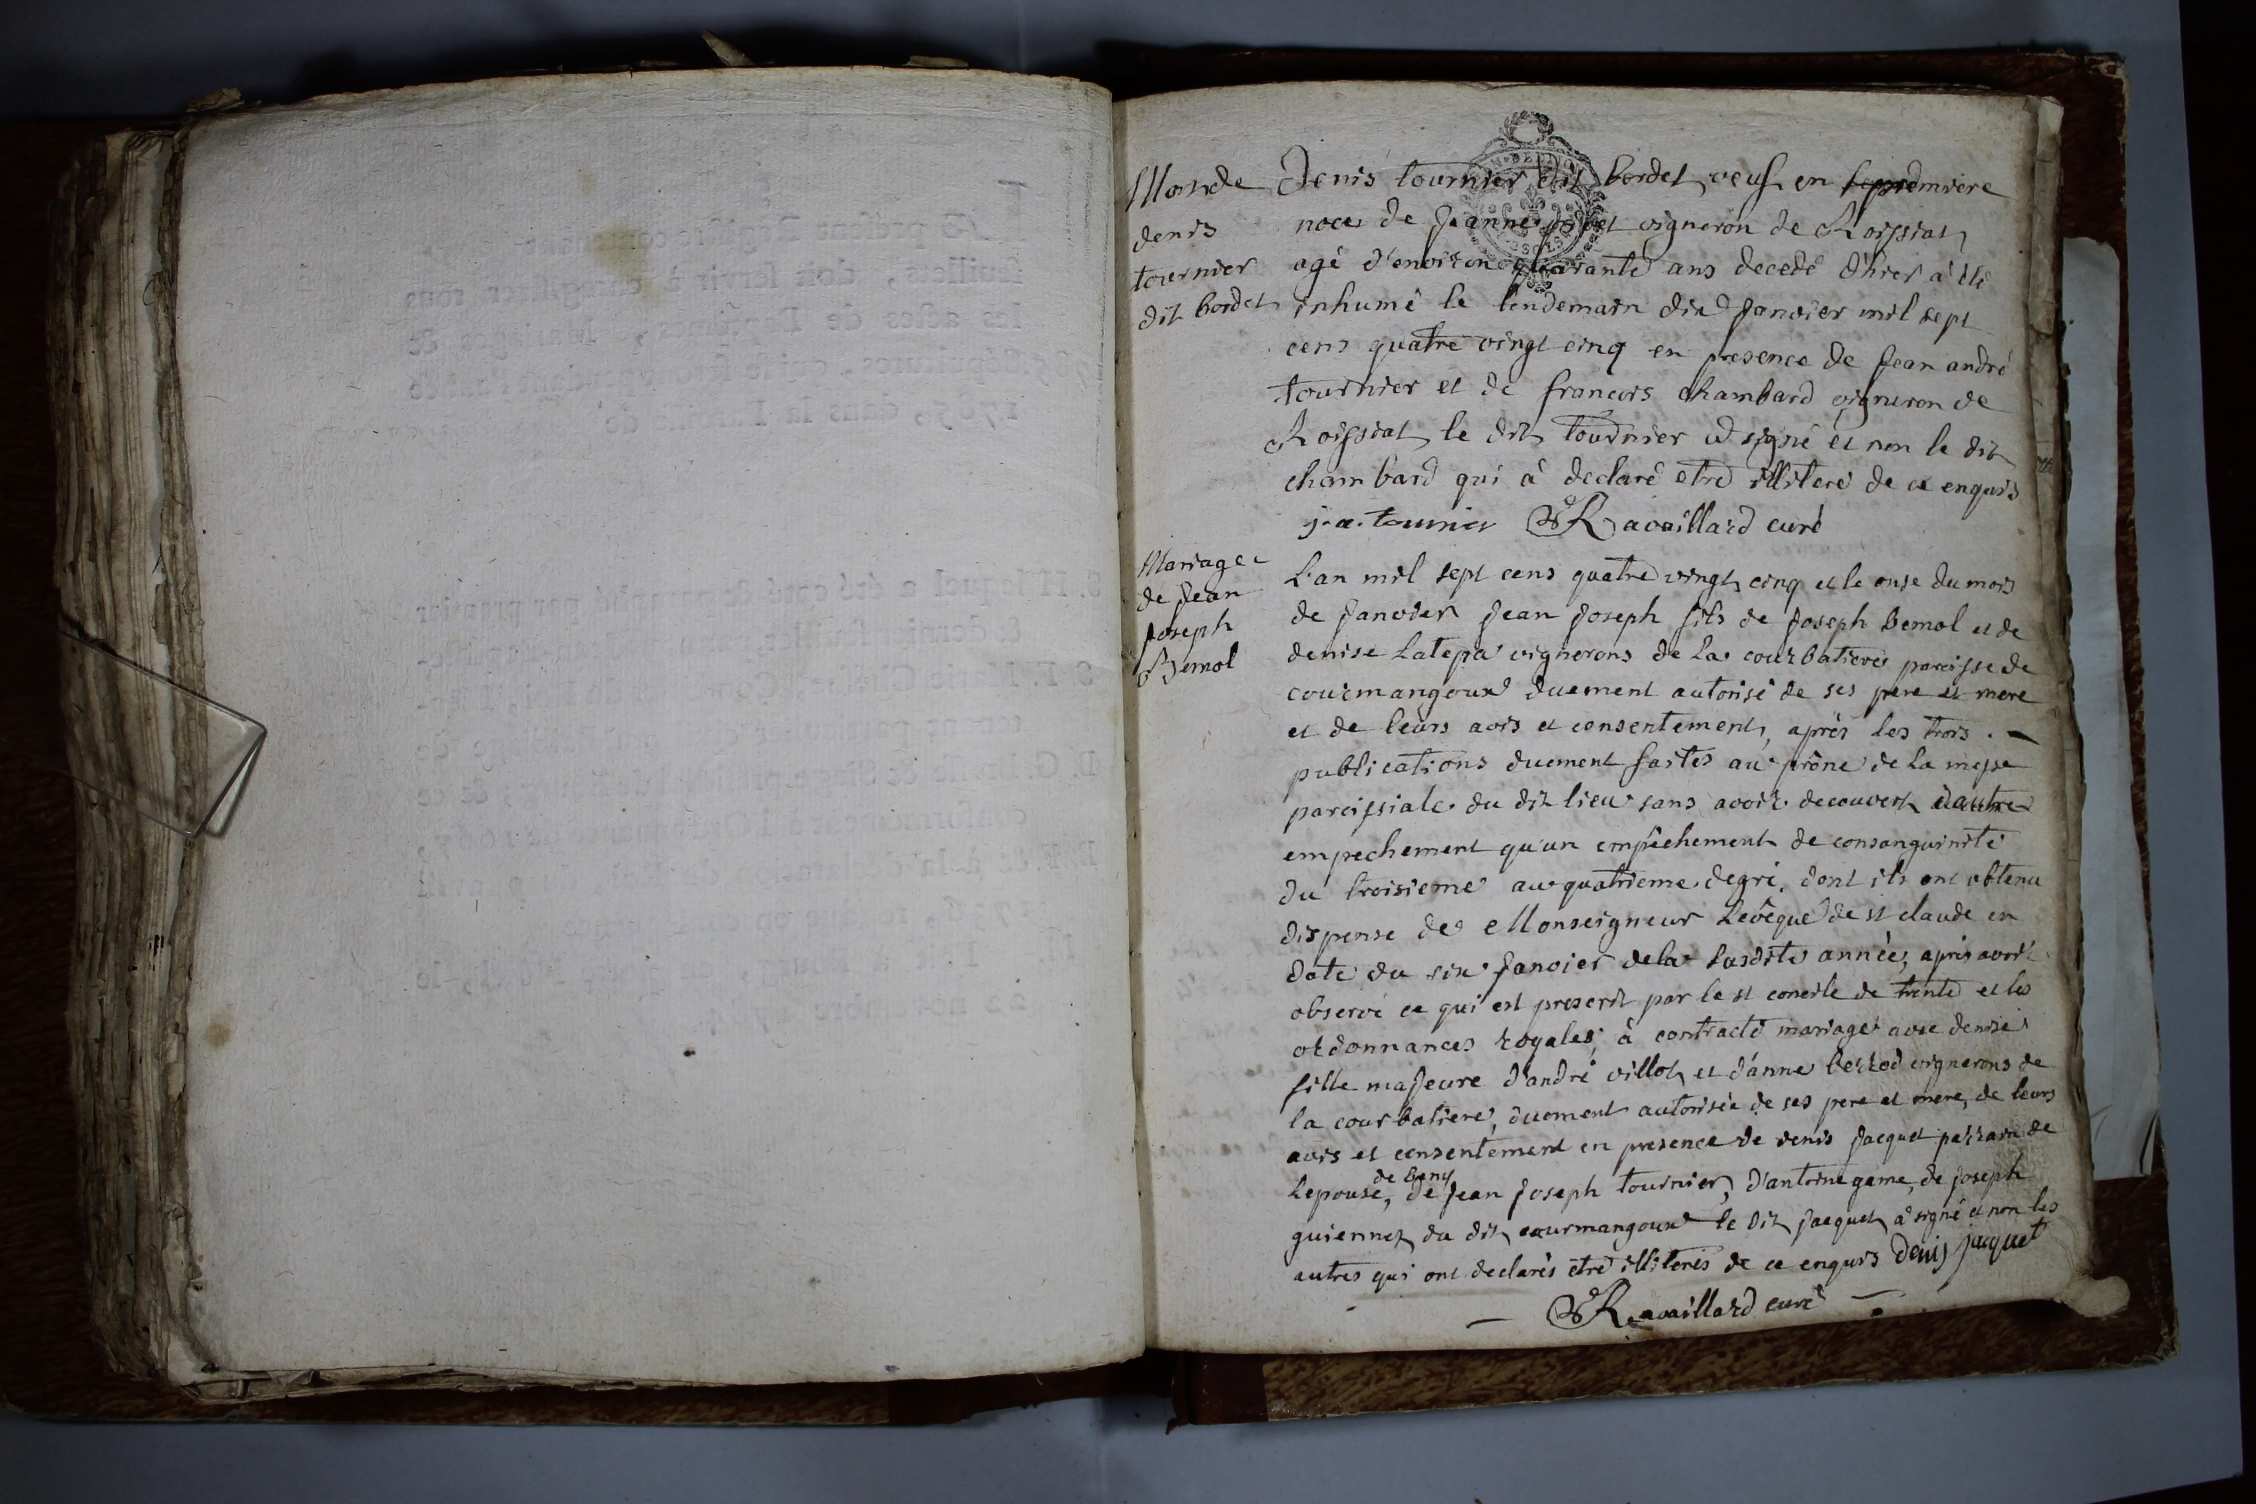 Mort de
denis
tournier
dit bordet
Denis tournier dit bordet veuf en premiere
noces de Jeanne vigneron de Roissiat
agé d'environ quarante ans decedé d'hier à été
inhumé le lendemain dix Janvier mil sept
cens quatre vingt cinq en presence de Jean andré
tournier et de francois Chambard vigneron de
Roissiat le dit tournier a signé et non le dit
chambard qui à declaré etre illiteré de ce enquis
j. a. tournier Ravaillard curé
Mariage
de Jean
Joseph
Bemol
L'an mil sept cens quatre vingt cinq et le onse du mois
de Janvier Jean Joseph fils de Joseph bemol et de
denise Latepa vignerons de La courbatiere paroisse de
courmangoux duement autorisé de ses pere et mere
et de leurs avis et consentement, après les trois . —
publications duement faites au prône de La messe
paroissiale du dit lieu sans avoir decouvert d'autre
empechement qu'un empêchement de consanguinité
du troisieme au quatrieme degré, dont ils ont obtenu
dispense de Monseigneur Levêque de st claude en
date du six Janvier de la susdite année, après avoir
observé ce qui est prescrit par le st concile de trente et les
ordonnances royales, à contracté mariage avec denise
fille majeure d'andré villot et d'anne berrod vignerons de
la courbatiere, duement autorisée de ses pere et mere, de leurs
avis et consentement en presence de denis Jacquet parrain de
Lepouse, de beny de Jean Joseph tournier, d'antoine game, de joseph
guiennet du dit courmangoux le dit Jacquet à signé et non les
autres qui ont declarés être illiterés de ce enquis Denis jaquet
Ravaillard curé